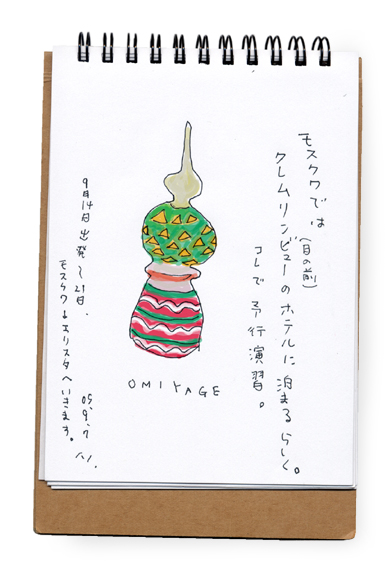 モスクワでは
クレムリンビューのホテルに泊まるらしく。
(目の前)
コレで予行演習。
OMIYAGE
9月14日出発〜21日.
モスクワ→エリスタへいきます。
05.9.7